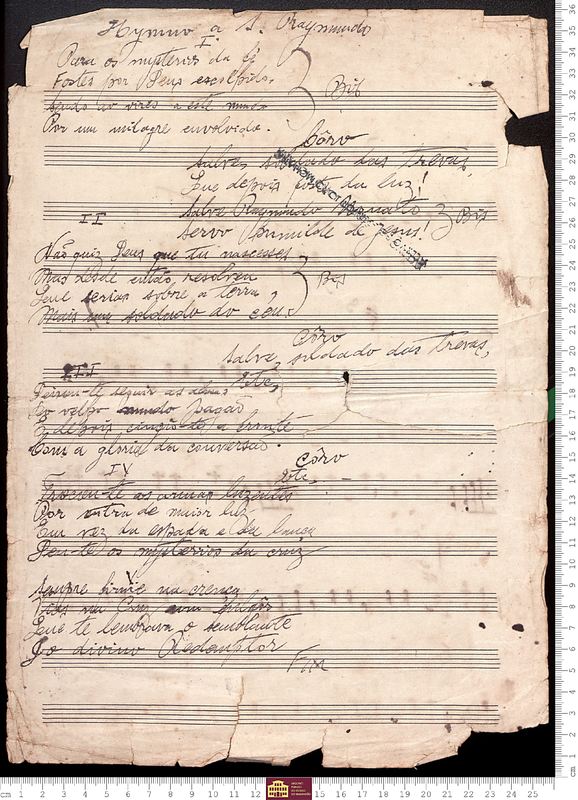 Hymno a S. Raymundo
I
Para os mysterios da fé
Fostes por Deus escolpido,
Sendo ao vires a este mundo
Por um milagre envolvido.
Bis
Côro
Salve, soldado das trevas,
Que depois foste da luz!
Salve Raymundo Nonnato
Servo humilde de Jesus!
Bis
II
Não quiz Deus que tu nascesses
Mas desde então resolveu
Que serias sobre a terra,
Mais um soldado do céu.
Bis
Côro
Salve, soldado das trevas,
Etc,
III
seguir as
Do velho mundo pagão
E depois a fronte
Com a gloria da conversão.
Côro
Etc.
IV
Trocou-te as armas luzentes
Por outra de maior luz
Em vez da espada e da lança
Deu-te os mysterios da cruz
V
Sempre firme na crença
na Cruz
Que te lembrava o semblante
Do divino Redemptor
Fim
cm
1 2 3 4 5 6 7 8 9 10 11 12 15 16 17 18 19 20 21 22 23 24 25